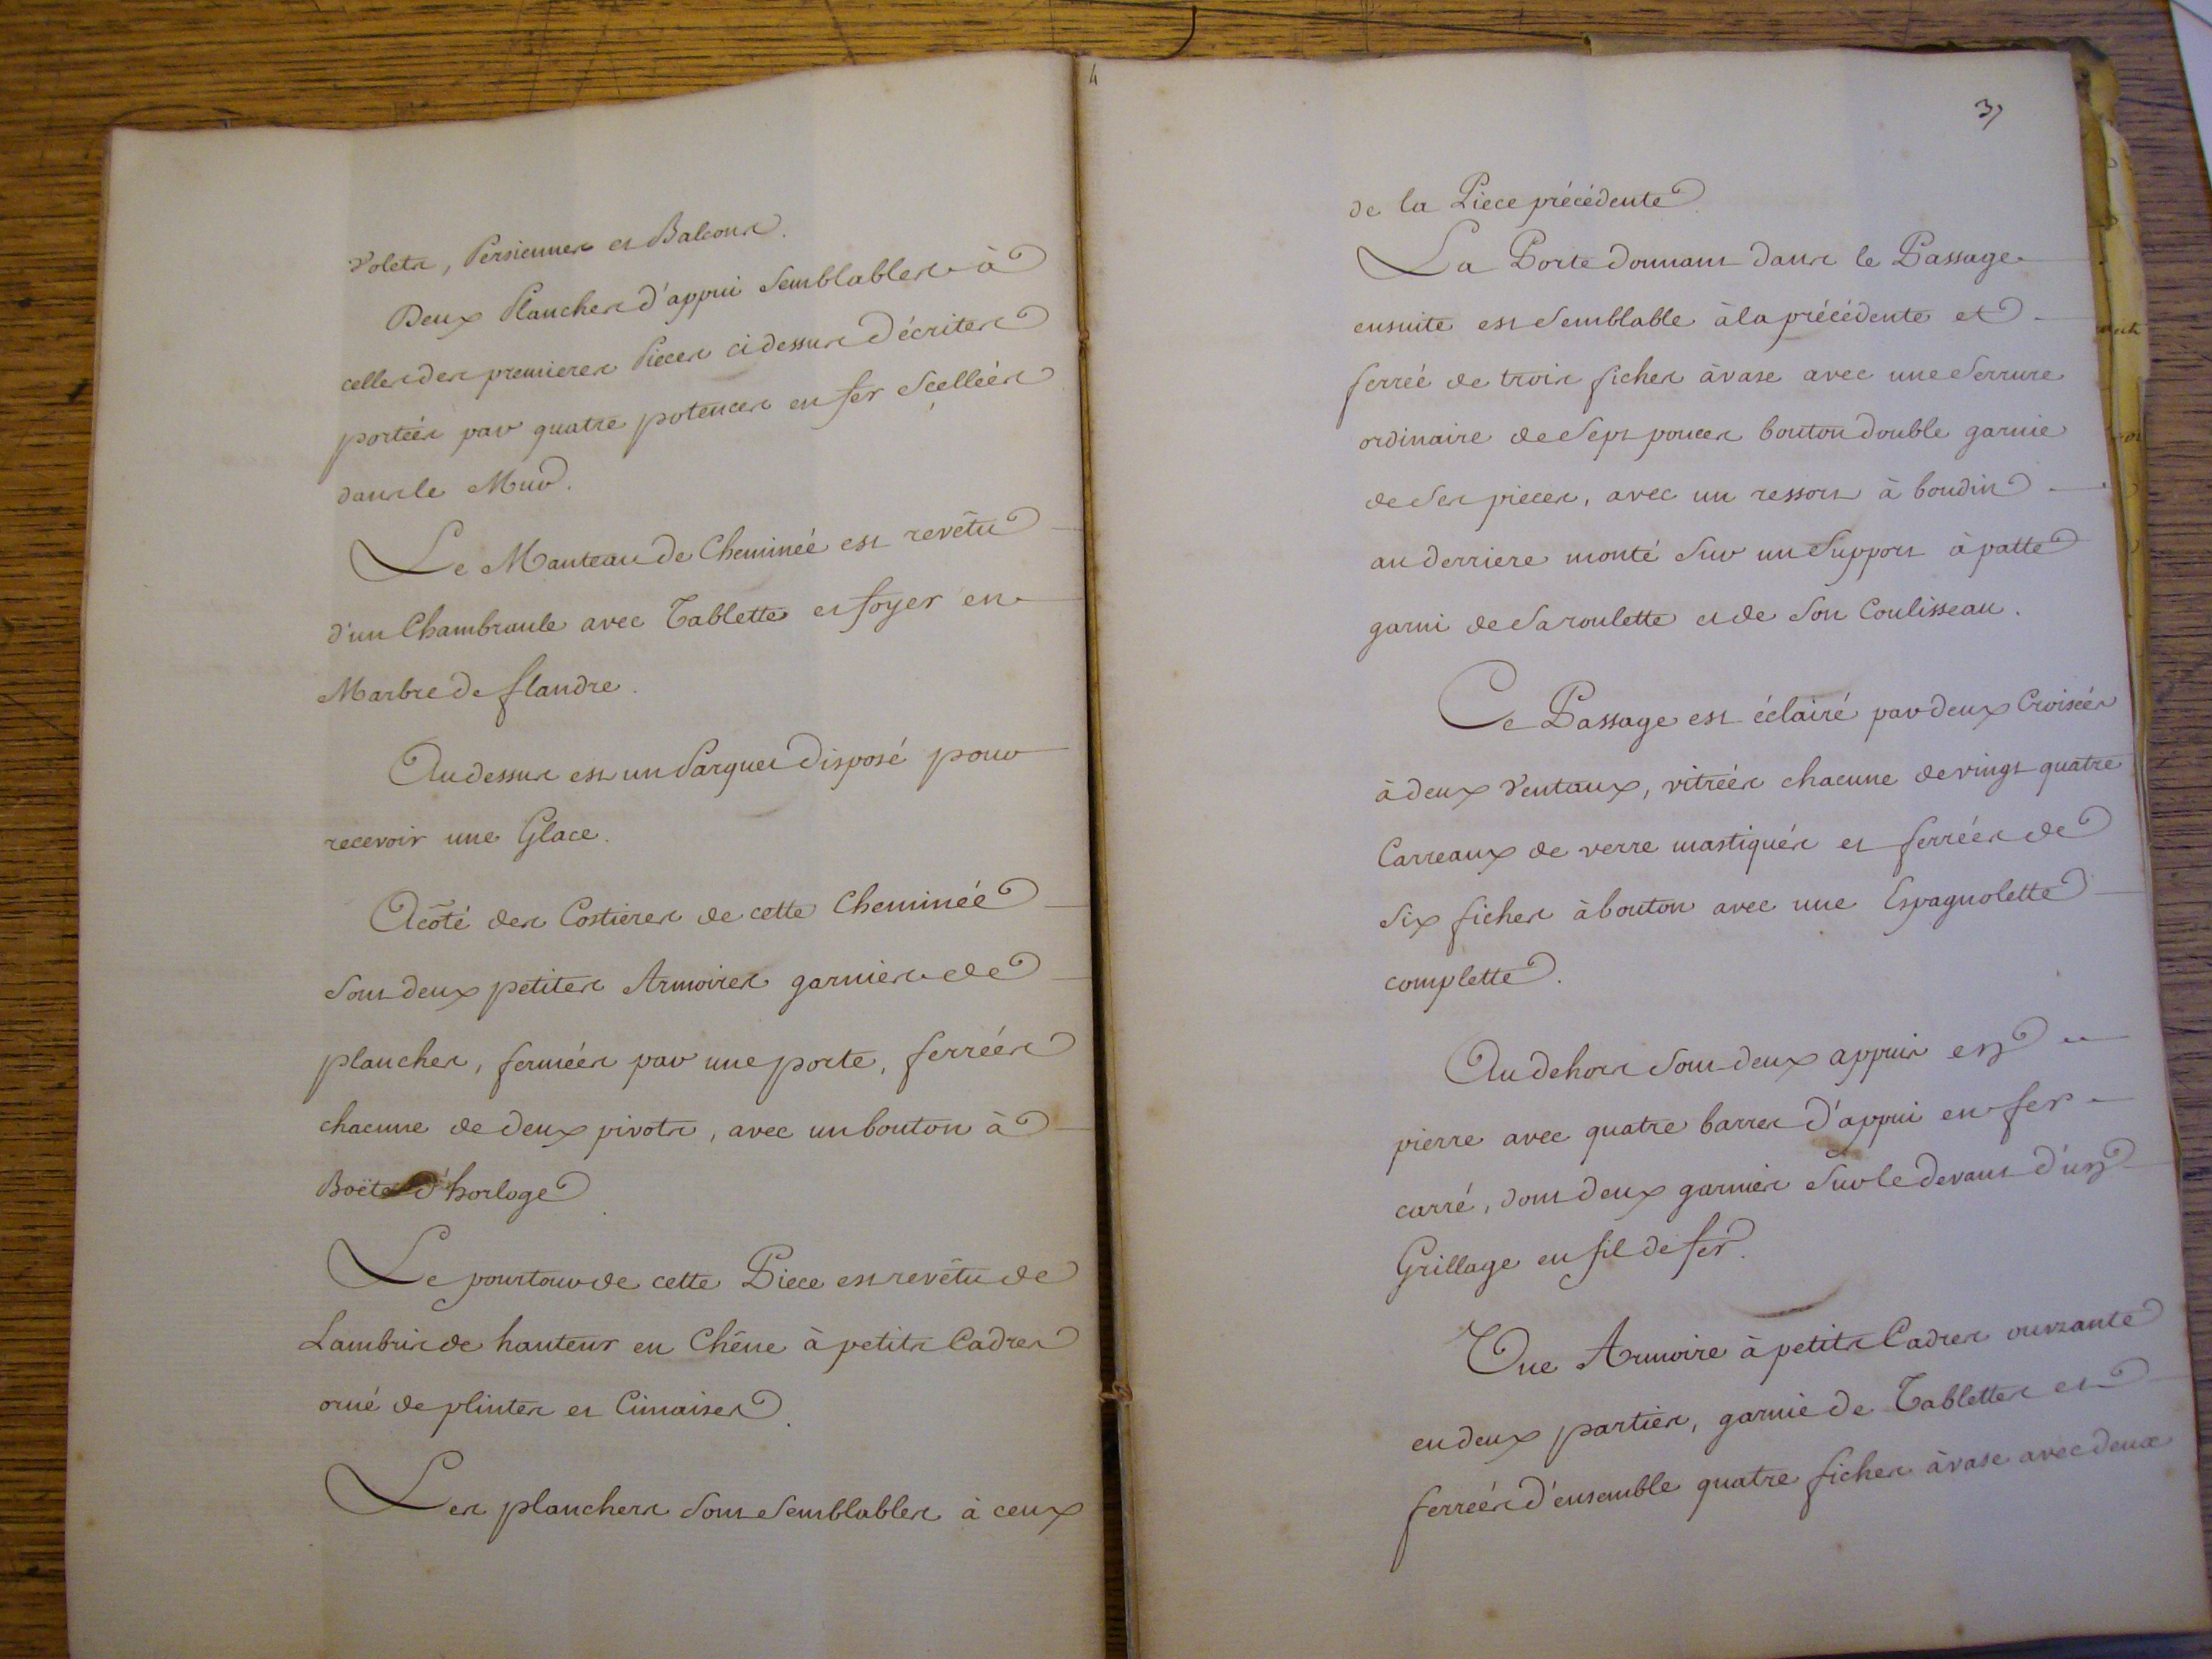 Volets, Persiennes et Balcons.
Deux Planches d'appui Semblables à
celles des premieres Pieces ci dessus Décrites
portées par quatre potences en fer Scellées
dans le Mur.
Le Manteau de Cheminée est revêtu
d'un Chambranle avec Tablette et foyer en
Marbre de flandre.
Au dessus est un Parquet Disposé pour
recevoir une Glace.
A côté des Costieres de cette Cheminée
Sont deux petites Armoires garnies de
planches, fermées par une porte, ferrées
chacune de deux pivots, avec un bouton à
Boëte d'horloge.
Le pourtour de cette Piece est revêtu de
Lambris de hauteur en Chêne à petits Cadres
orné de plintes et Cimaises.
Les planchers Sont Semblables à ceux
4
3
de la Piece précédente.
La Porte donnant dans le Passage
ensuite est Semblable à la précédente et
ferreé de trois fiches à vase avec une Serrure
ordinaire de Sept pouces bouton double garnie
de Ses pieces, avec un ressort à boudin
au derriere monté Sur un Support à patte
garni de Sa roulette et de Son Coulisseau.
Ce Passage est éclairé par deux Croisées
à deux Ventaux, vitrées chacune de vingt quatre
Carreaux de verre mastiqués et ferrées de
Six fiches à bouton avec une Espagnolette
complette.
Au dehors Sont deux appuis en
pierre avec quatre barres d'appui en fer
carré, dont deux garnies Sur le devant d'un
Grillage en fil de fer.
Une Armoire à petits Cadres ouvrante
en deux parties, garnie de Tablettes et
ferreés d'ensemble quatre fiches à vase avec deux